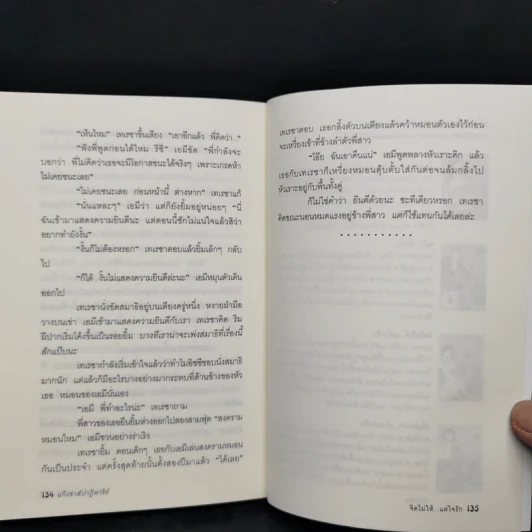 "เห็นไหม" เทเรซาขึ้นเสียง "เอาอีกแล้ว พี่คิดว่า..."
"ฟังพี่พูดก่อนได้ไหม รีซี" เอมี่ขัด "พี่กำลังจะ
บอกว่า พี่ไม่คิดว่าเธอจะมีโอกาสชนะได้จริงๆ เพราะเกรดห้า
ไม่เคยชนะเลย"
"ไม่เคยชนะเลย ก่อนหน้านี้ ต่างหาก" เทเรซาแก้
"นั่นแหละๆ" เอมี่ว่า แต่ก็ยังยิ้มอยู่หน่อยๆ "นี่
ฉันเข้ามาแสดงความยินดีนะ แต่ตอนนี้ชักไม่แน่ใจแล้วสิว่า
อยากทำยังงั้น"
"งั้นก็ไม่ต้องหรอก" เทเรซาตอบแล้วยิ้มเด็กๆ กลับ
ไป
"ก็ได้ งั้นไม่แสดงความยินดีล่ะนะ" เอมี่หมุนตัวเดิน
ออกไป
เทเรซานั่งขัดสมาธิอยู่บนเตียงครู่หนึ่ง หงายฝ่ามือ
วางบนเข่า เอมี่เข้ามาแสดงความยินดีกับเรา เทเรซาคิด ริม
ฝีปากเริ่มโค้งขึ้นเป็นรอยยิ้ม บางทีเราน่าจะเพ่งสมาธิที่เรื่องนี้
สักแป๊บนะ
เทเรซากำลังเริ่มเข้าใจแล้วว่าทำไมอิซซีชอบนั่งสมาธิ
มากนัก แต่แล้วก็มีอะไรบางอย่างมากระทบที่ด้านข้างของหัว
เธอ หมอนของเอมี่นั่นเอง
"เอมี่ พี่ทำอะไรน่ะ" เทเรซาถาม
พี่สาวของเธอยืนยิ้มห่างออกไปสองสามฟุต "สงคราม
หมอนไหม" เอมี่ชวนอย่างร่าเริง
เทเรซายิ้ม ตอนเด็กๆ เธอกับเอมี่เล่นสงครามหมอน
กันเป็นประจำ แต่ครั้งสุดท้ายนั้นตั้งสองปีมาแล้ว "ได้เลย"
134 แก๊งซ่าส์ปาฏิหาริย์
เทเรซาตอบ เธอกลิ้งตัวบนเตียงแล้วคว้าหมอนตัวเองไว้ก่อน
จะเหวี่ยงเข้าที่ข้างลำตัวพี่สาว
"โอ๊ย ฉันเอาคืนแน่" เอมี่พูดพลางหัวเราะคิก แล้ว
เธอกับเทเรซาก็เหวี่ยงหมอนตุ้บตั้บใส่กันต่อจนล้มกลิ้งไป
หัวเราะอยู่กับพื้นทั้งคู่
ก็ไม่ใช่คำว่า ยินดีด้วยนะ ซะทีเดียวหรอก เทเรซา
คิดขณะนอนหมดแรงอยู่ข้างพี่สาว แต่ก็ใช้แทนกันได้เลยล่ะ
• • • • • • • • • • •
จิตไม่ให้...แต่ใจรัก 135